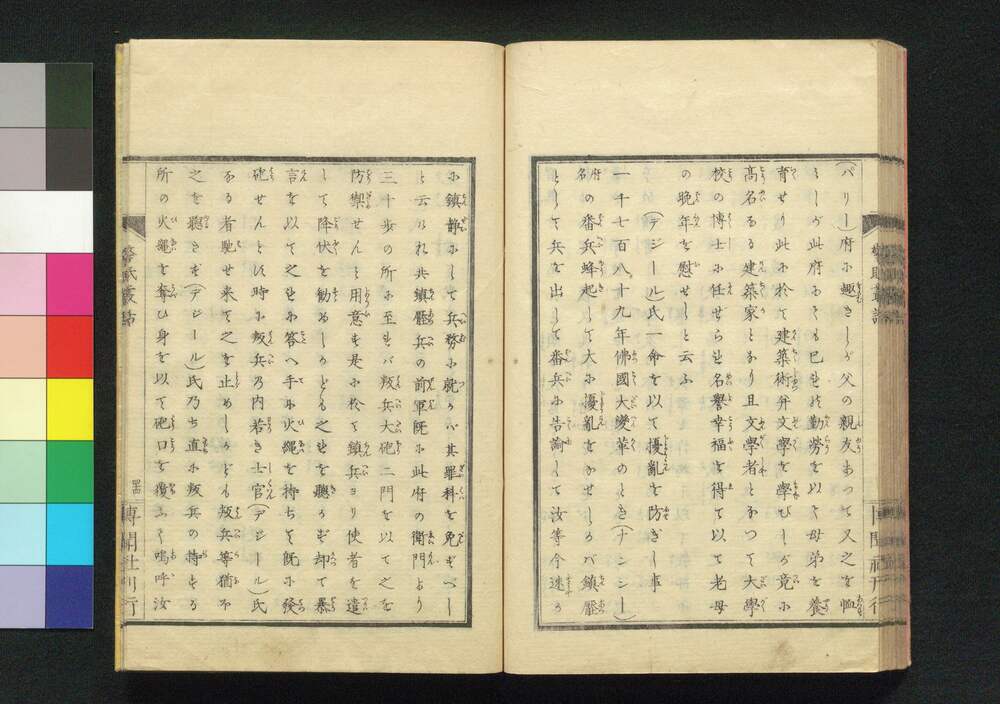 (パリー)府に趣きしが父の親友あつて又之を恤
みしが此府にても已れの勤勞を以て母弟を養
育せり此に於て建築術并文學を學びしが竟に
高名なる建築家となり且文學者となつて大學
校の博士に任せられ名譽幸福を得て以て老母
の晩年を慰せしと云ふ
(デジール)氏一命を以て擾亂を防ぎし事
一千七百八十九年佛國大變革のとき(ナンシー)
府の番兵蜂起して大に擾亂をなせしかバ鎮壓
として兵を出して番兵に告諭して汝等今速か
に鎮静にして兵務に就かバ其罪科を免ずべし
と云はれ共鎮壓兵の前軍既に此府の衛門より
三十歩の所に至れバ叛兵大砲二門を以て之を
防禦せんと用意す是に於て鎮兵ヨリ使者を遣
して降伏を勧むしかども之れを聽かず却て暴
言を以て之れに答へ手に火縄を持ちて既に發
砲せんとす時に叛兵の内若き士官(デジール)氏
なる者馳せ来て之を止めしかども叛兵等猶ホ
之を聽きず(デジール)氏乃ち直に叛兵の持ちたる
所の火縄を奪ひ身を以て砲口を覆ふて嗚呼汝
勞氓叢話
四
博聞社刊行